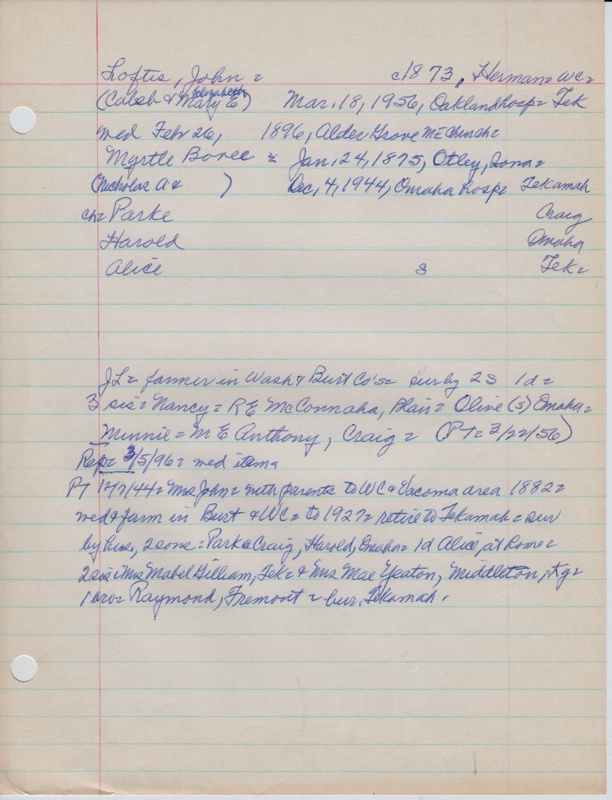 Loftis, John = c1873, Herman = WC =
Elizabeth
(Caleb & Mary E) Mar, 18, 1956, Oakland hosp = Tek
med Feb 26, 1896, Alder Grove ME Church =
Myrtle Bovee = Jan, 24, 1875, Otley, Iowa =
(Nicholas A & ) Dec, 4, 1944, Omaha hosp = Tekamah
ch = Parke Craig
Harold Omaha
Alice s Tek =
JL = farmer in Wash & Burt Co's = sur by 2S 1d =
3 sis = Nancy = R E McConnaha, Blair = Olive (s) Omaha =
Minnie = M E Anthony, Craig = (PT = 3/22/56)
Rep = 3/5/96 = med item =
PT 12/7/44 = Mrs John = with parents to WC & Vacoma area 1882 =
med & farm in Burt & WC = to 1927 = retire to Tekamah = sur
by hus, 2 sons = Park = Craig, Harold, Omaha = 1d Alice, at home =
2 sis = Mrs Mabel Gilliam, Tek = & Mrs Mae Yeaton, Middleton,
1 bro = Raymond, Fremont = bur, Tekamah.